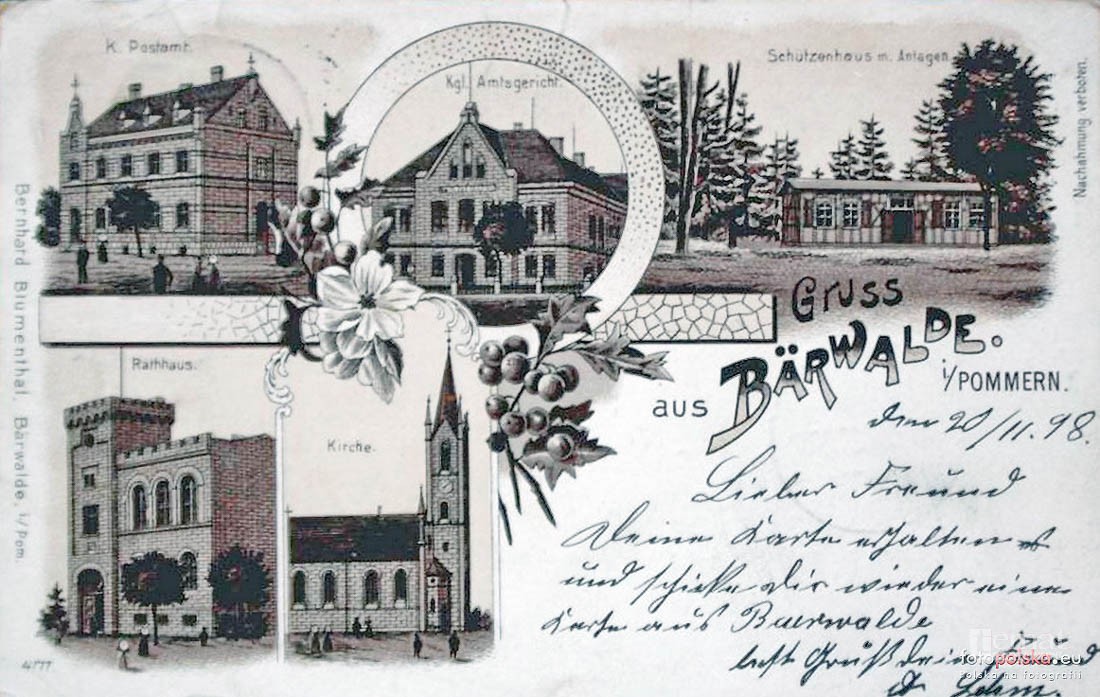 K. Postamt.
Kgl. Amtsgericht.
Schützenhaus m. Anlagen.
Nachahmung verboten.
Gruss
aus BÄRWALDE.
i/POMMERN.
Rathhaus.
Kirche.
Bernhard Blumenthal, Bärwalde, i/Pom.
den 20/11. 98.
Lieber Freund
Deine Karte erhalten
und schicke Dir wieder eine
Karte aus Baerwalde
Gruß dein Freund
4777
fotopolska.eu
Polska na fotografii